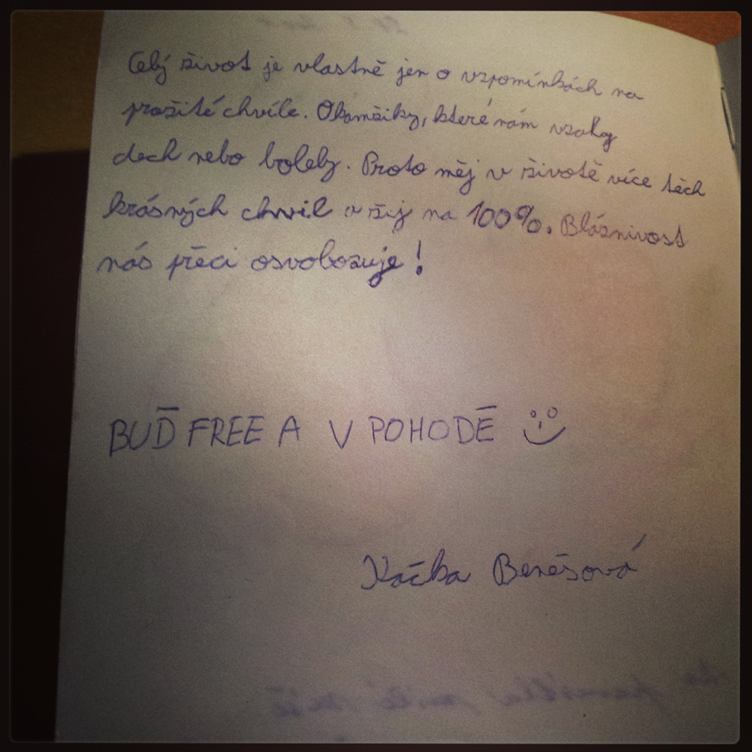 Celý život je vlastně jen o vzpomínkách na
prožité chvíle. Okamžiky, které nám vzaly
dech nebo bolely. Proto měj v životě více těch
krásných chvil a žij na 100%. Bláznivost
nás přeci osvobozuje!
BUĎ FREE A V POHODĚ
Kačka Benešová